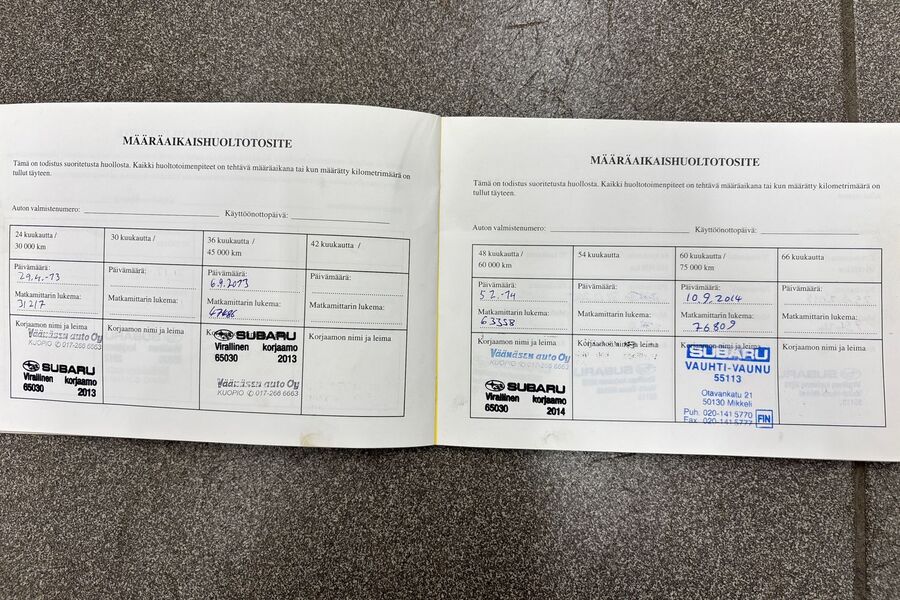 MÄÄRÄAIKAISHUOLTOTOSITE
Tämä on todistus suoritetusta huollosta. Kaikki huoltotoimenpiteet on tehtävä määräaikana tai kun määrätty kilometrimäärä on
tullut täyteen.
Auton valmistenumero: Käyttöönottopäivä:
24 kuukautta /
30 000 km
30 kuukautta /
36 kuukautta /
45 000 km
42 kuukautta /
Päivämäärä:
29.4.-13
Päivämäärä:
Päivämäärä:
6.9.2013
Päivämäärä:
Matkamittarin lukema:
31217
Matkamittarin lukema:
Matkamittarin lukema:
Matkamittarin lukema:
Korjaamon nimi ja leima
Väänäsen auto Oy
KUOPIO ✆ 017-266 6663
SUBARU
Virallinen korjaamo
65030 2013
Korjaamon nimi ja leima
SUBARU
Virallinen korjaamo
65030 2013
Väänäsen auto Oy
KUOPIO ✆ 017-266 6663
Korjaamon nimi ja leima
MÄÄRÄAIKAISHUOLTOTOSITE
Tämä on todistus suoritetusta huollosta. Kaikki huoltotoimenpiteet on tehtävä määräaikana tai kun määrätty kilometrimäärä on
tullut täyteen.
Auton valmistenumero: Käyttöönottopäivä:
48 kuukautta /
60 000 km
54 kuukautta
60 kuukautta /
75 000 km
66 kuukautta
Päivämäärä:
5 2.-14
Päivämäärä:
Päivämäärä:
10.9.2014
Päivämäärä:
Matkamittarin lukema:
63358
Matkamittarin lukema:
Matkamittarin lukema:
76809
Matkamittarin lukema:
Korjaamon nimi ja leima
Väänäsen auto Oy
KUOPIO ✆ 017-266 6663
SUBARU
Virallinen korjaamo
65030 2014
Korjaamon nimi ja leima
Korjaamon nimi ja leima
SUBARU
VAUHTI-VAUNU
55113
Otavankatu 21
50130 Mikkeli
Puh. 020-141 5770
Fax. 020-141 5777 FIN
Korjaamon nimi ja leima